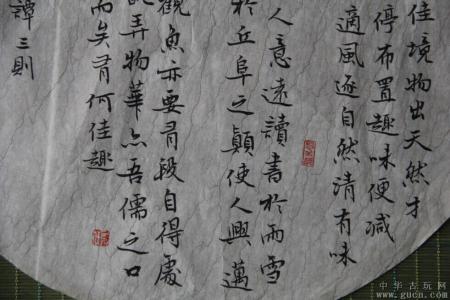 佳境物出天然才
停布置趣味便减
適風逐自然清有味
人意遠讀書於雨雪
於丘阜之顛使人興邁
觀魚亦要有段自得處
弄物華亦吾儒之口
而矣有何佳趣
譚三則
中华古玩网
www.gucn.com